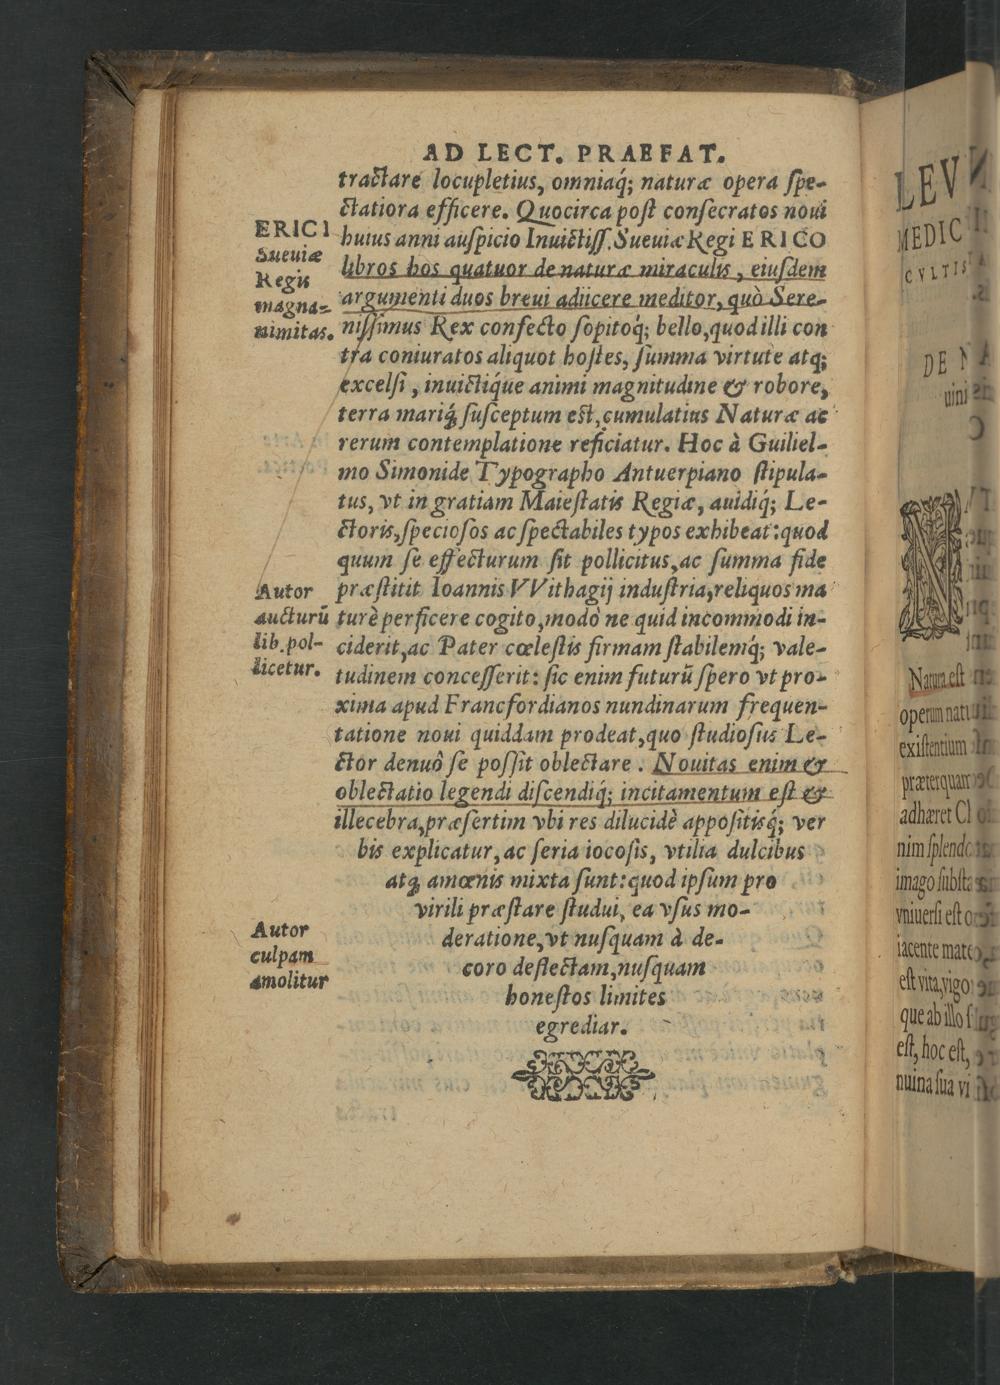 AD LECT. PRAEFAT.
tractare locupletius, omniaq́; naturæ opera ſpe-
ctatiora efficere. Quocirca poſt conſecratos noui
huius anni auſpicio Inuictiſſ. Sueuiæ Regi ERICO
libros hos quatuor de naturæ miraculis, eiuſdem
argumenti duos breui adiicere meditor, quò Sere-
niſſimus Rex confecto ſopitoq́; bello, quod illi con
tra coniuratos aliquot hoſtes, ſumma virtute atq;
excelſi, inuictiq́ue animi magnitudine & robore,
terra mariq́; ſuſceptum eſt, cumulatius Naturæ ac
rerum contemplatione reficiatur. Hoc à Guiliel-
mo Simonide Typographo Antuerpiano ſtipula-
tus, vt in gratiam Maieſtatis Regiæ, auidiq́; Le-
ctoris, ſpecioſos ac ſpectabiles typos exhibeat: quod
quum ſe effecturum ſit pollicitus, ac ſumma fide
præſtitit Ioannis VVithagij induſtria, reliquos ma
turè perficere cogito, modò ne quid incommodi in-
ciderit, ac Pater cœleſtis firmam ſtabilemq́; vale-
tudinem conceſſerit: ſic enim futurũ ſpero vt pro-
xima apud Francfordianos nundinarum frequen-
tatione noui quiddam prodeat, quo ſtudioſus Le-
ctor denuò ſe poſſit oblectare. Nouitas enim &
oblectatio legendi diſcendiq́; incitamentum eſt &
illecebra, præſertim vbi res dilucidè appoſitisq́; ver
bis explicatur, ac ſeria iocoſis, vtilia dulcibus
atq; amœnis mixta ſunt: quod ipſum pro
virili præſtare ſtudui, ea vſus mo-
deratione, vt nuſquam à de-
coro deflectam, nuſquam
honeſtos limites
egrediar.
ERICI
Sueuiæ
Regis
magna-
nimitas.
Autor
aucturũ
lib. pol-
licetur.
Autor
culpam
amolitur
LEV
MEDIC
CVLTIS
DE N
uini
N
Natura eſt
operum natu
exiſtentium
præterquam
adhæret
nim ſplendo
imago ſubſta
vniuerſi eſt
iacente mate
eſt vita, vigo
que ab illo
eſt, hoc eſt,
nuina ſua vi